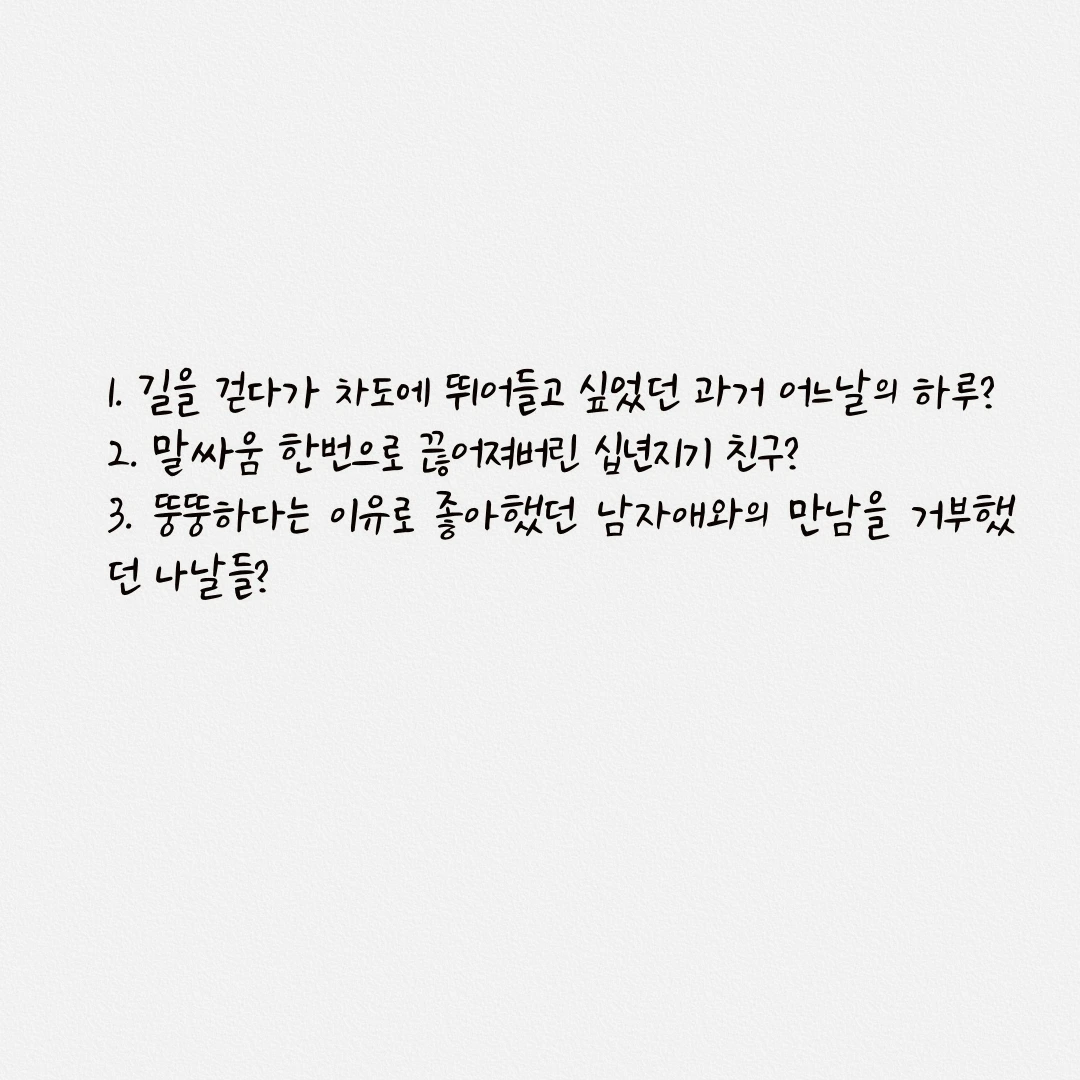 1. 길을 걷다가 차도에 뛰어들고 싶었던 과거 어느날의 하루?
2. 말싸움 한번으로 끊어져버린 십년지기 친구?
3. 뚱뚱하다는 이유로 좋아했던 남자애와의 만남을 거부했
던 나날들?